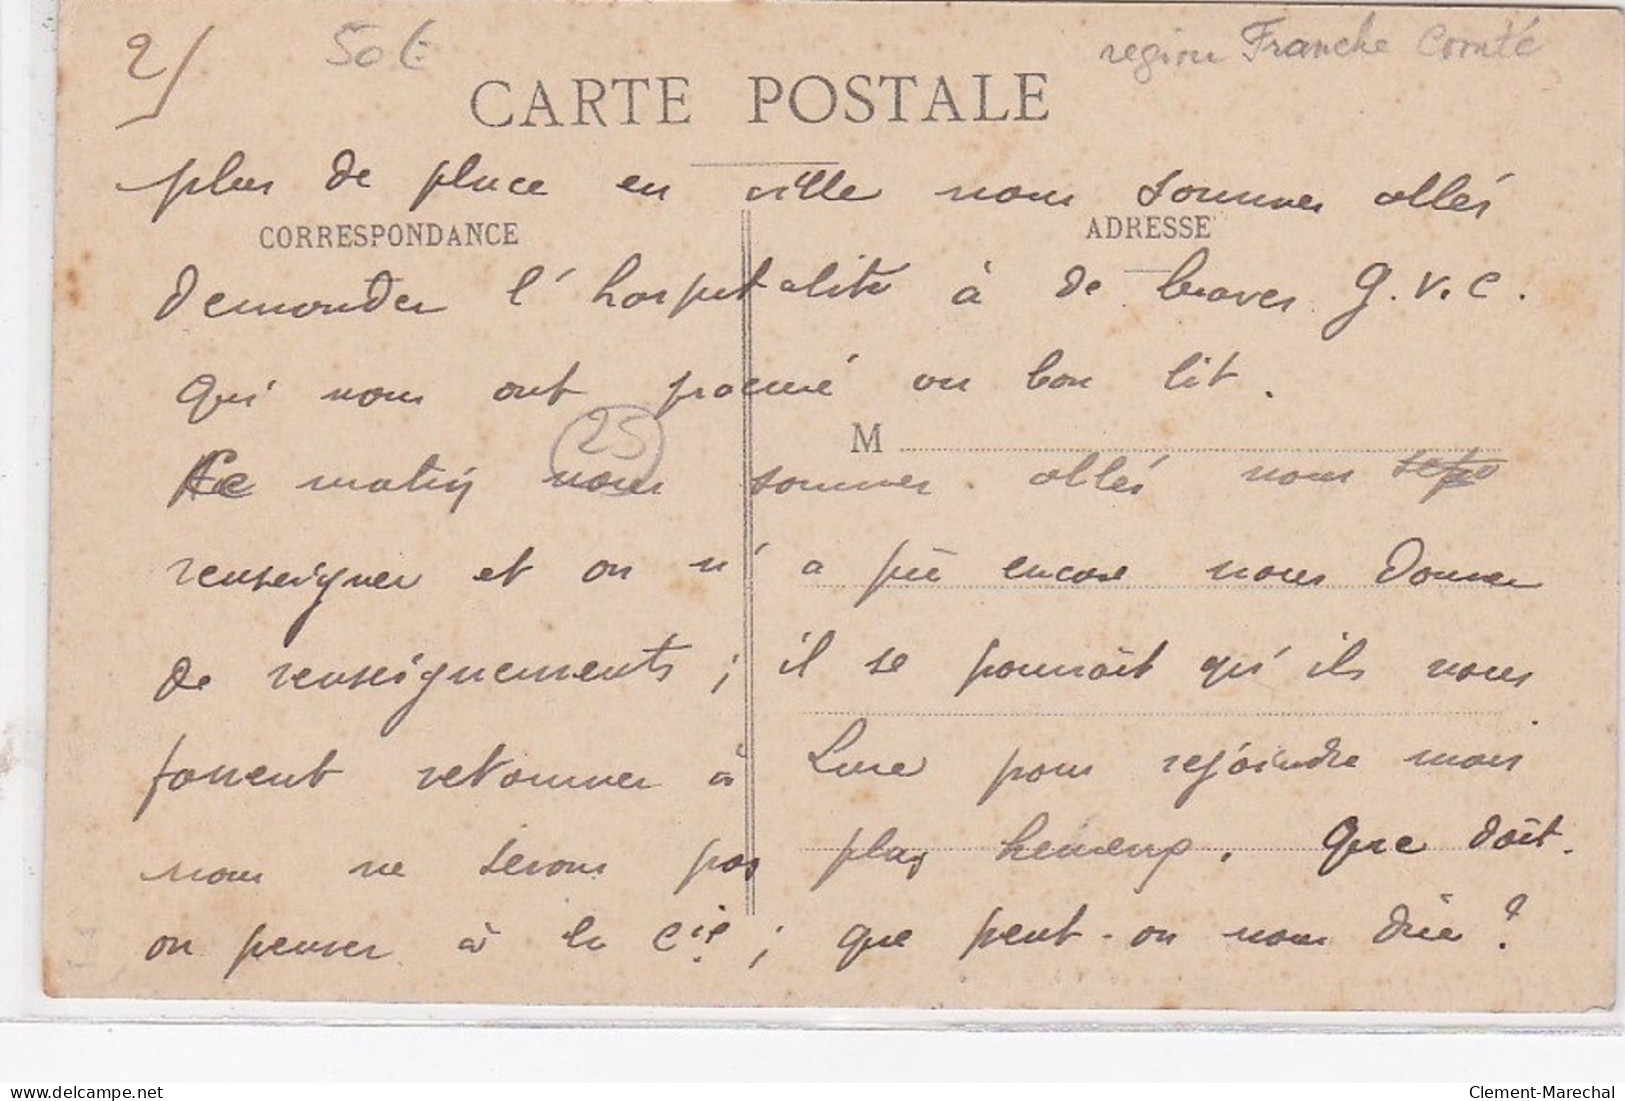 2/
50 €
region Franche Comté
CARTE POSTALE
plus de place en ville nous sommes allés
CORRESPONDANCE
ADRESSE
demander l'hospitalité à de braves G.V.C.
qui nous ont procuré un bon lit.
25
M
Ce matin nous sommes allés nous
renseigner et on n'a pû encore nous donner
de renseignements; il se pourrait qu'ils nous
fassent retourner à Lure pour rejoindre mais
nous ne serons pas plus heureux. Que doit-
on penser à la Cie; que peut-on nous dire?
delcampe.net
Clement-Marechal